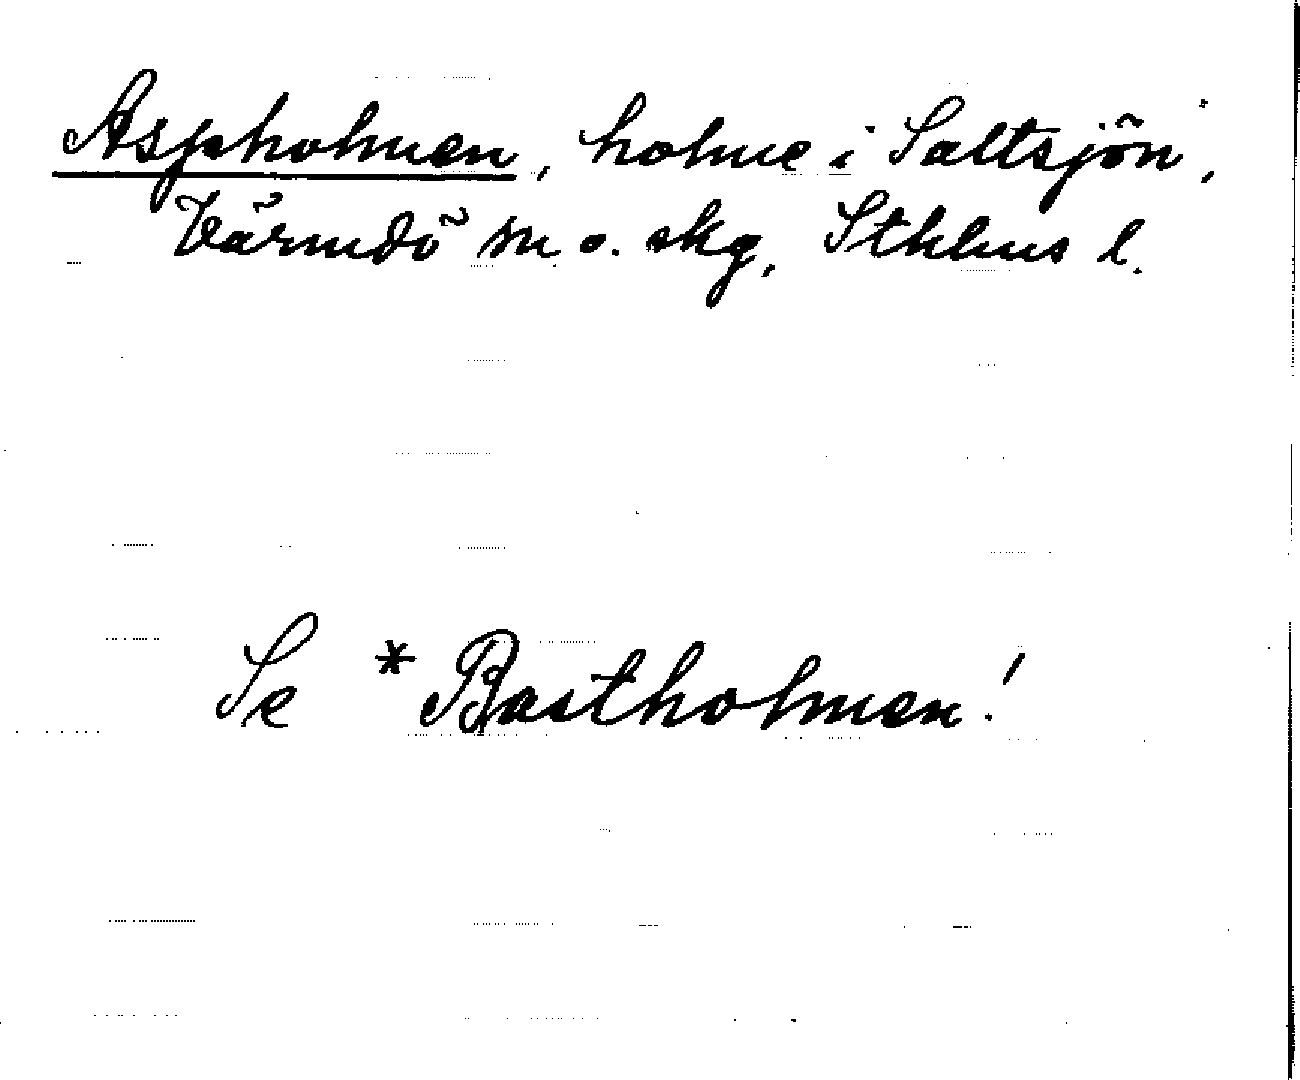 Aspholmen, holme i Saltsjön,
Värmdö sn o. skg, Sthlms l.
Se *Bastholmen!